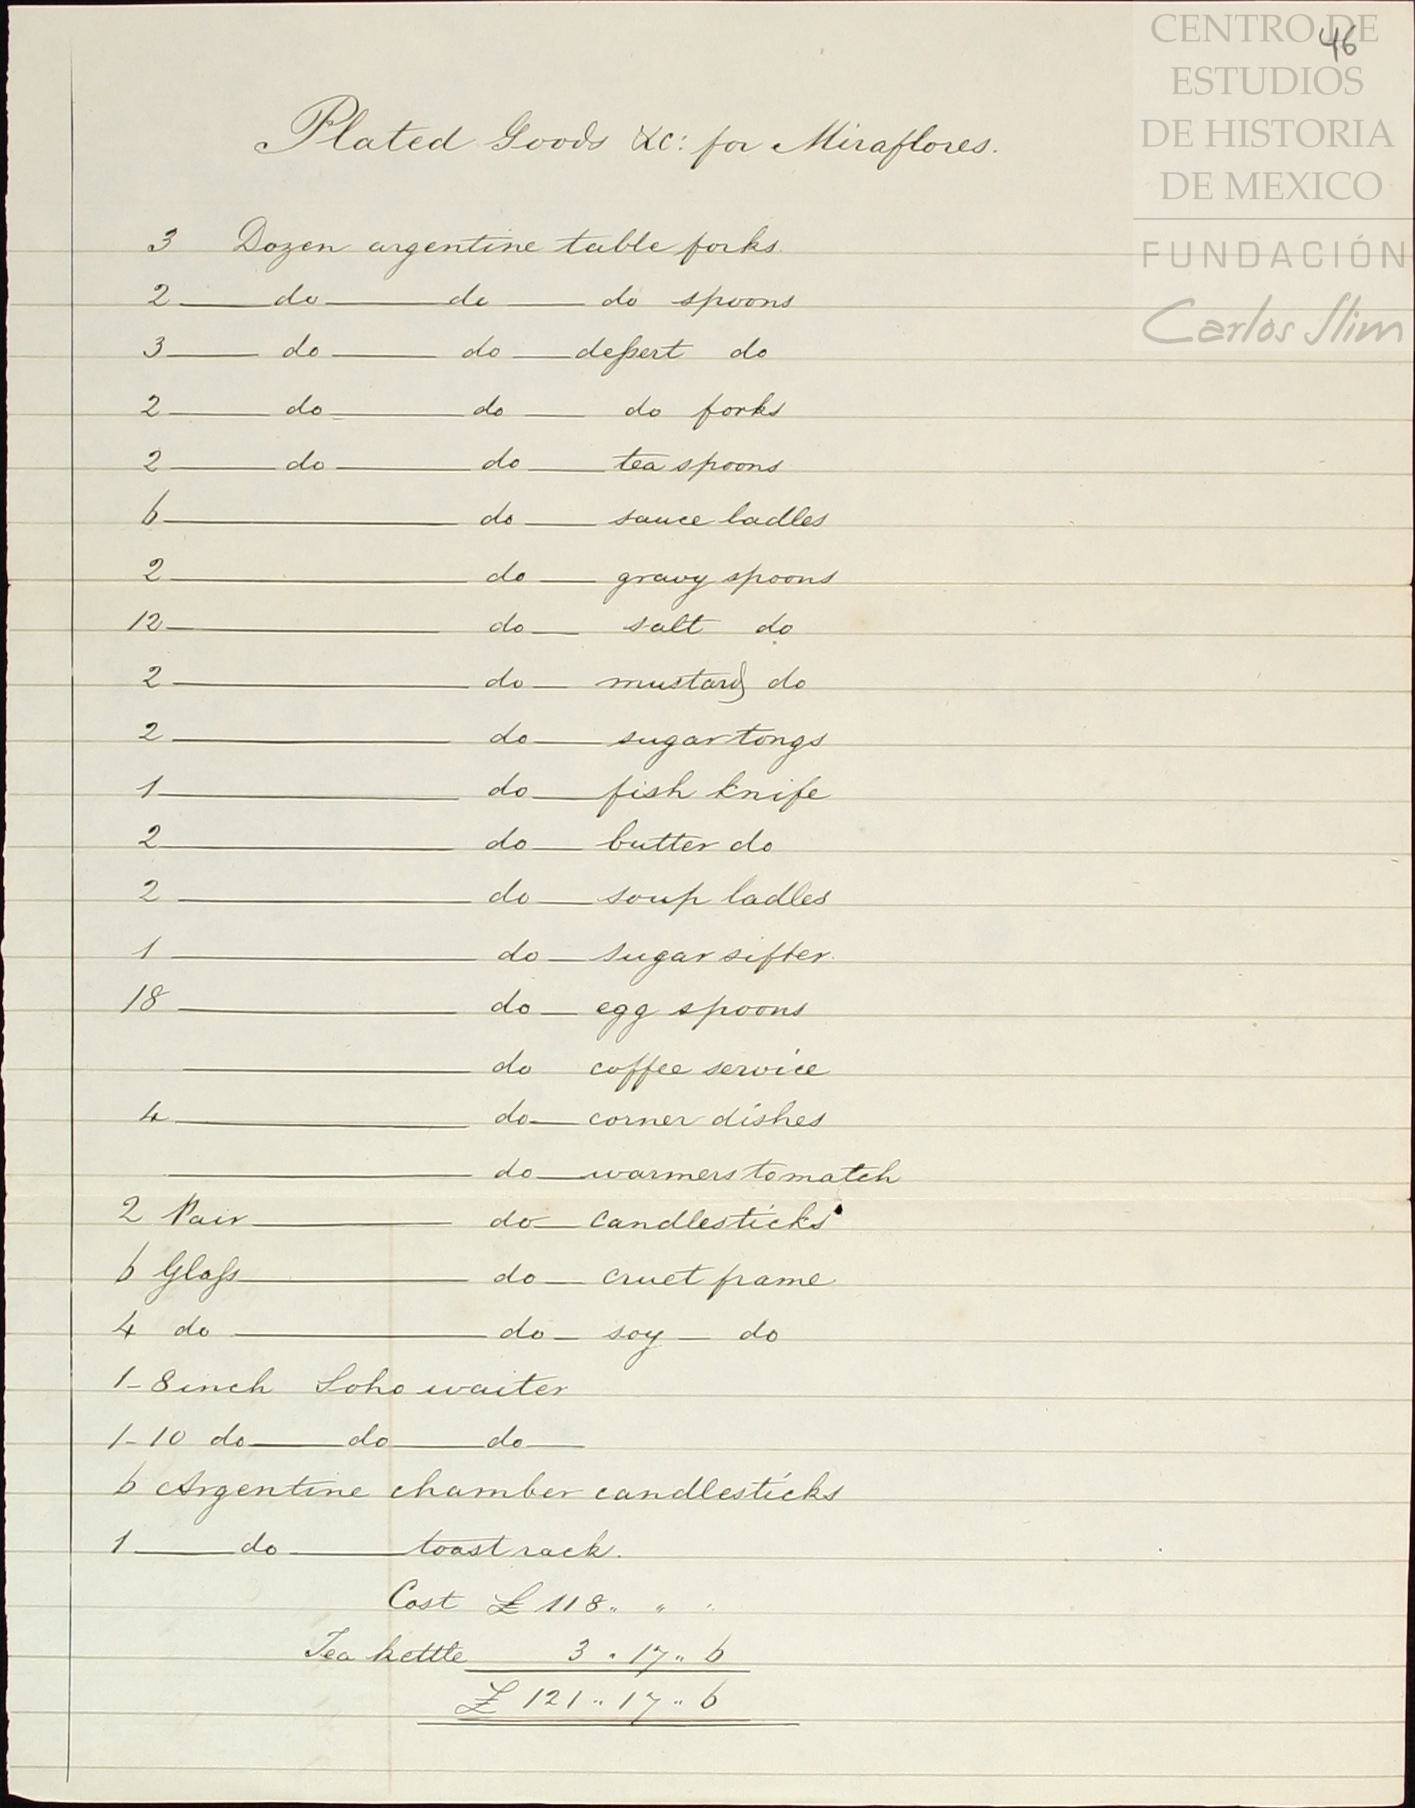 46
CENTRO DE
ESTUDIOS
DE HISTORIA
DE MEXICO
FUNDACIÓN
Carlos Slim
Plated Goods &c: for Miraflores.
3 Dozen argentine table forks.
2 — do — do — do spoons
3 — do — do — deßert do
2 — do — do — do forks
2 — do — do — tea spoons
6 — do — sauce ladles
2 — do — gravy spoons
12 — do — salt do
2 — do — mustard do
2 — do — sugar tongs
1 — do — fish knife
2 — do — butter do
2 — do — soup ladles
1 — do — sugar sifter.
18 — do — egg spoons
— do coffee service
4 — do — corner dishes
— do — warmers to match
2 Pair — do — candlesticks
6 Glaſs — do — cruet frame
4 do — do — soy — do
1 - 8 inch Soho waiter
1 - 10 do — do — do —
6 Argentine chamber candlesticks
1 — do — toast rack.
Cost £ 118 " " "
Tea kettle 3 " 17 " 6
£ 121 " 17 " 6